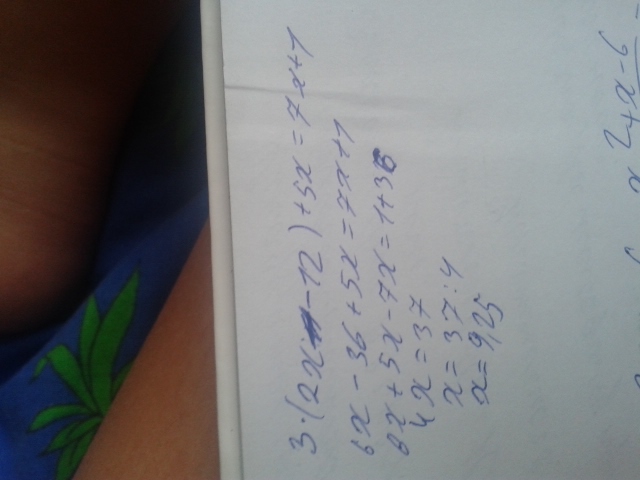 3·(2x-12)+5x=7x+1
6x-36+5x=7x+1
6x+5x-7x=1+36
4x=37
x=37:4
x=9,25
x²+x-6